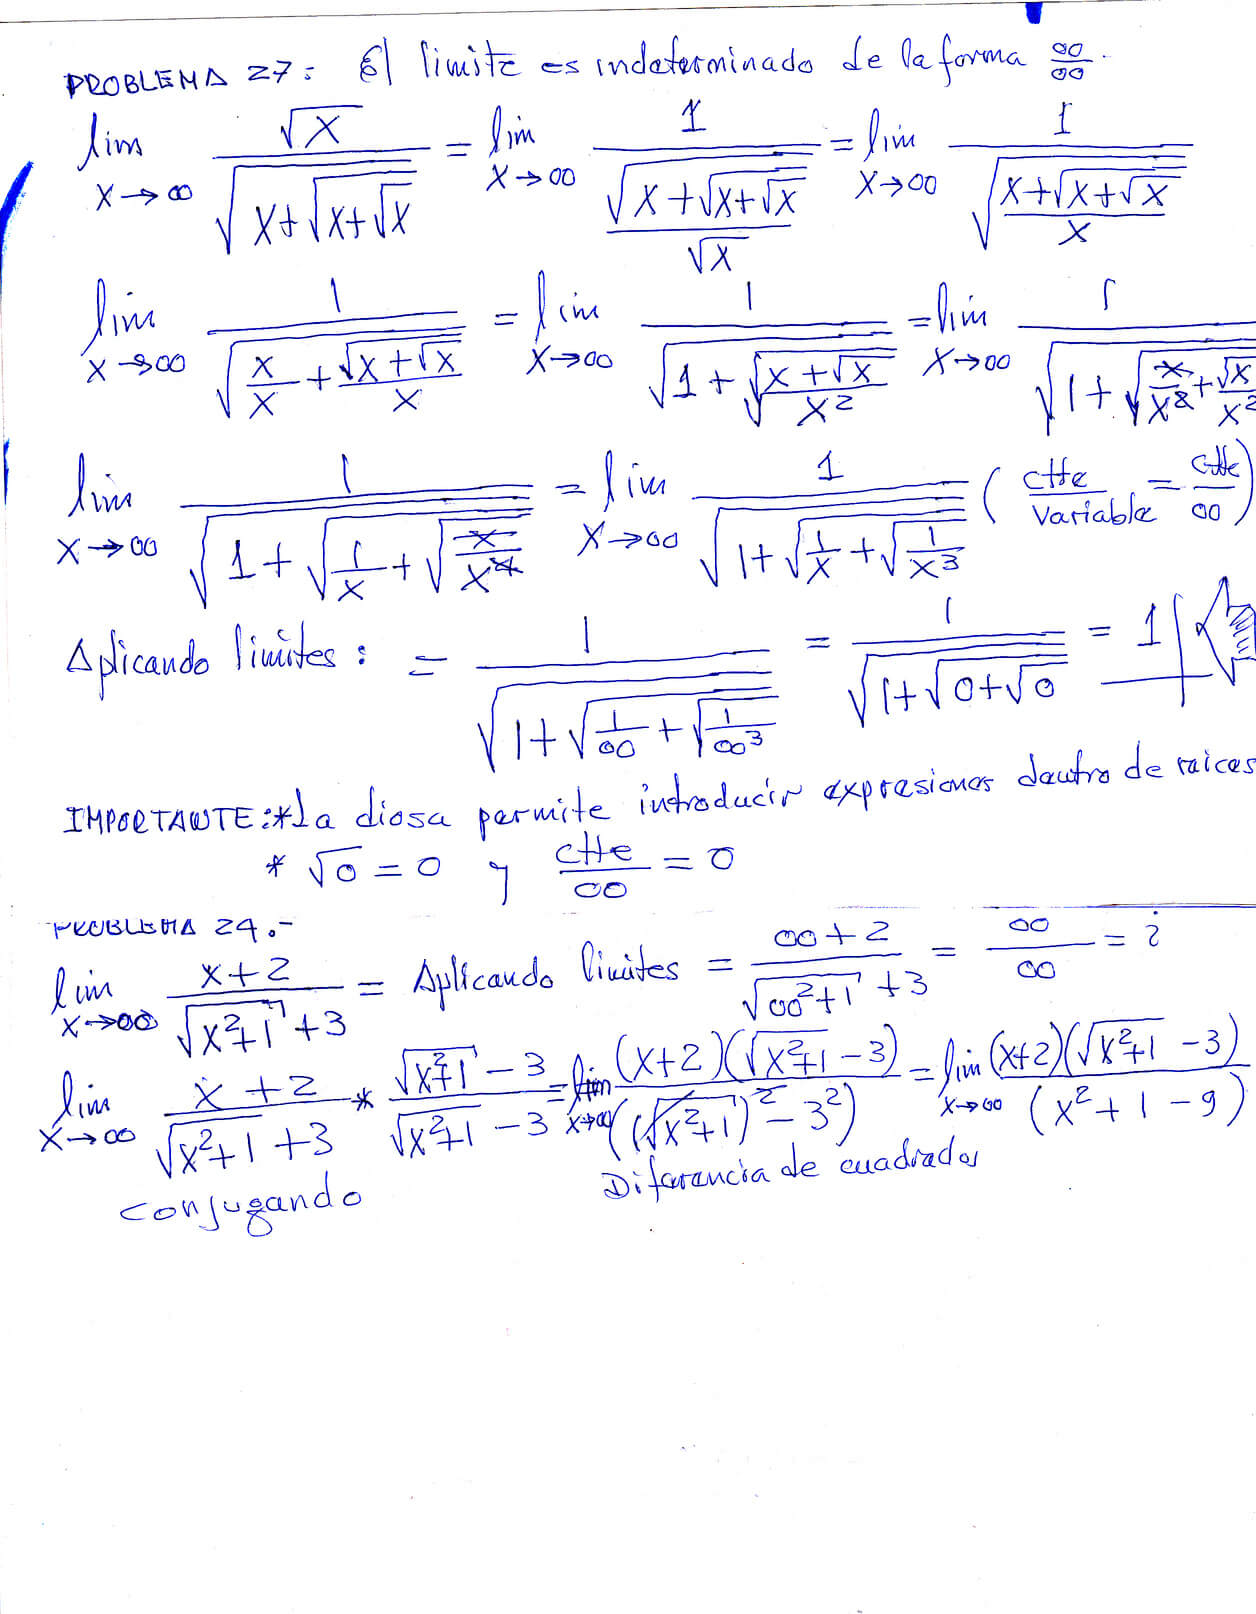 PROBLEMA 27: El limite es indeterminado de la forma ∞/∞.
lim x→∞ √x / √(x+√(x+√x)) = lim x→∞ 1 / (√(x+√(x+√x)) / √x) = lim x→∞ 1 / √((x+√(x+√x))/x)
lim x→∞ 1 / √(x/x + √(x+√x)/x) = lim x→∞ 1 / √(1+√((x+√x)/x²)) = lim x→∞ 1 / √(1+√(x/x² + √x/x²))
lim x→∞ 1 / √(1+√(1/x + √(x/x⁴))) = lim x→∞ 1 / √(1+√(1/x + √(1/x³))) (ctte/variable = ctte/∞)
Aplicando limites: = 1 / √(1+√(1/∞ + √(1/∞³))) = 1 / √(1+√(0+√0)) = 1
IMPORTANTE: *La diosa permite introducir expresiones dentro de raices
* √0 = 0 y ctte/∞ = 0
PROBLEMA 24.-
lim x→∞ (x+2) / (√(x²+1) +3) = Aplicando limites = (∞+2) / (√(∞²+1) +3) = ∞/∞ = ¿
lim x→∞ (x+2) / (√(x²+1) +3) * (√(x²+1) -3) / (√(x²+1) -3) = lim x→∞ (x+2)(√(x²+1) -3) / ((√(x²+1))² - 3²) = lim x→∞ (x+2)(√(x²+1) -3) / (x²+1-9)
conjugando Diferencia de cuadrados